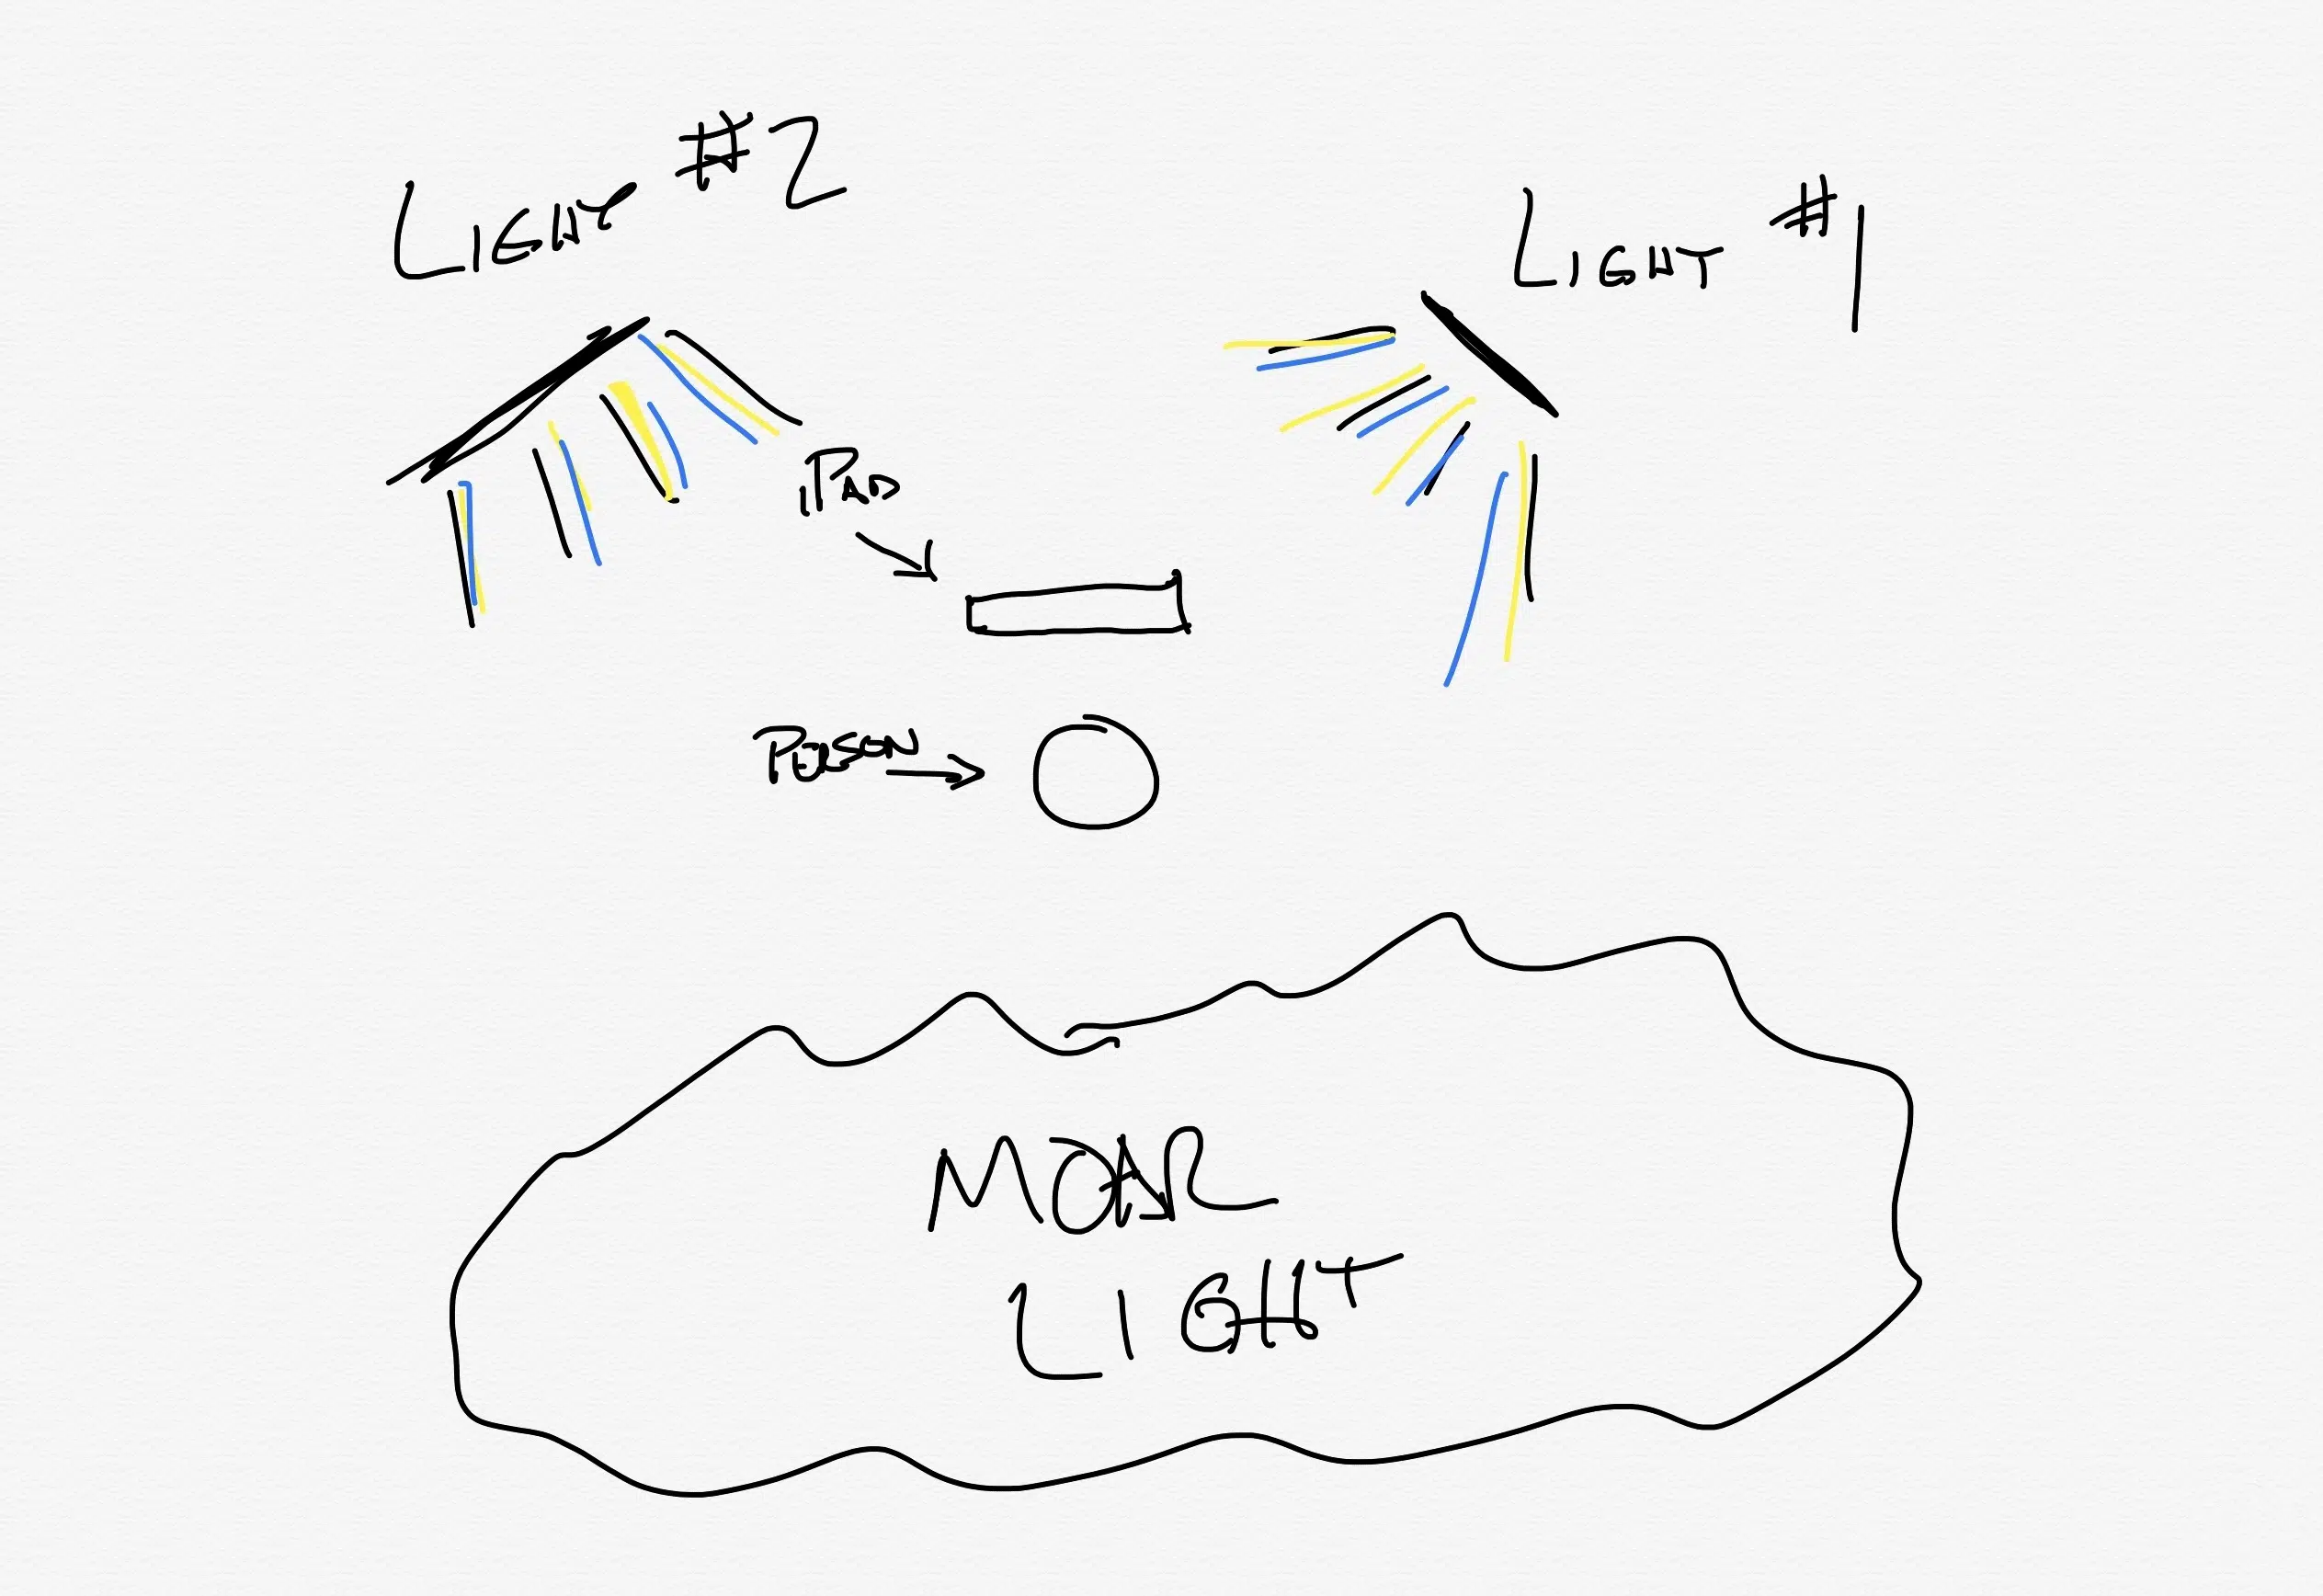 LIGHT #2
LIGHT #1
IPAD
PERSON
MOAR
LIGHT